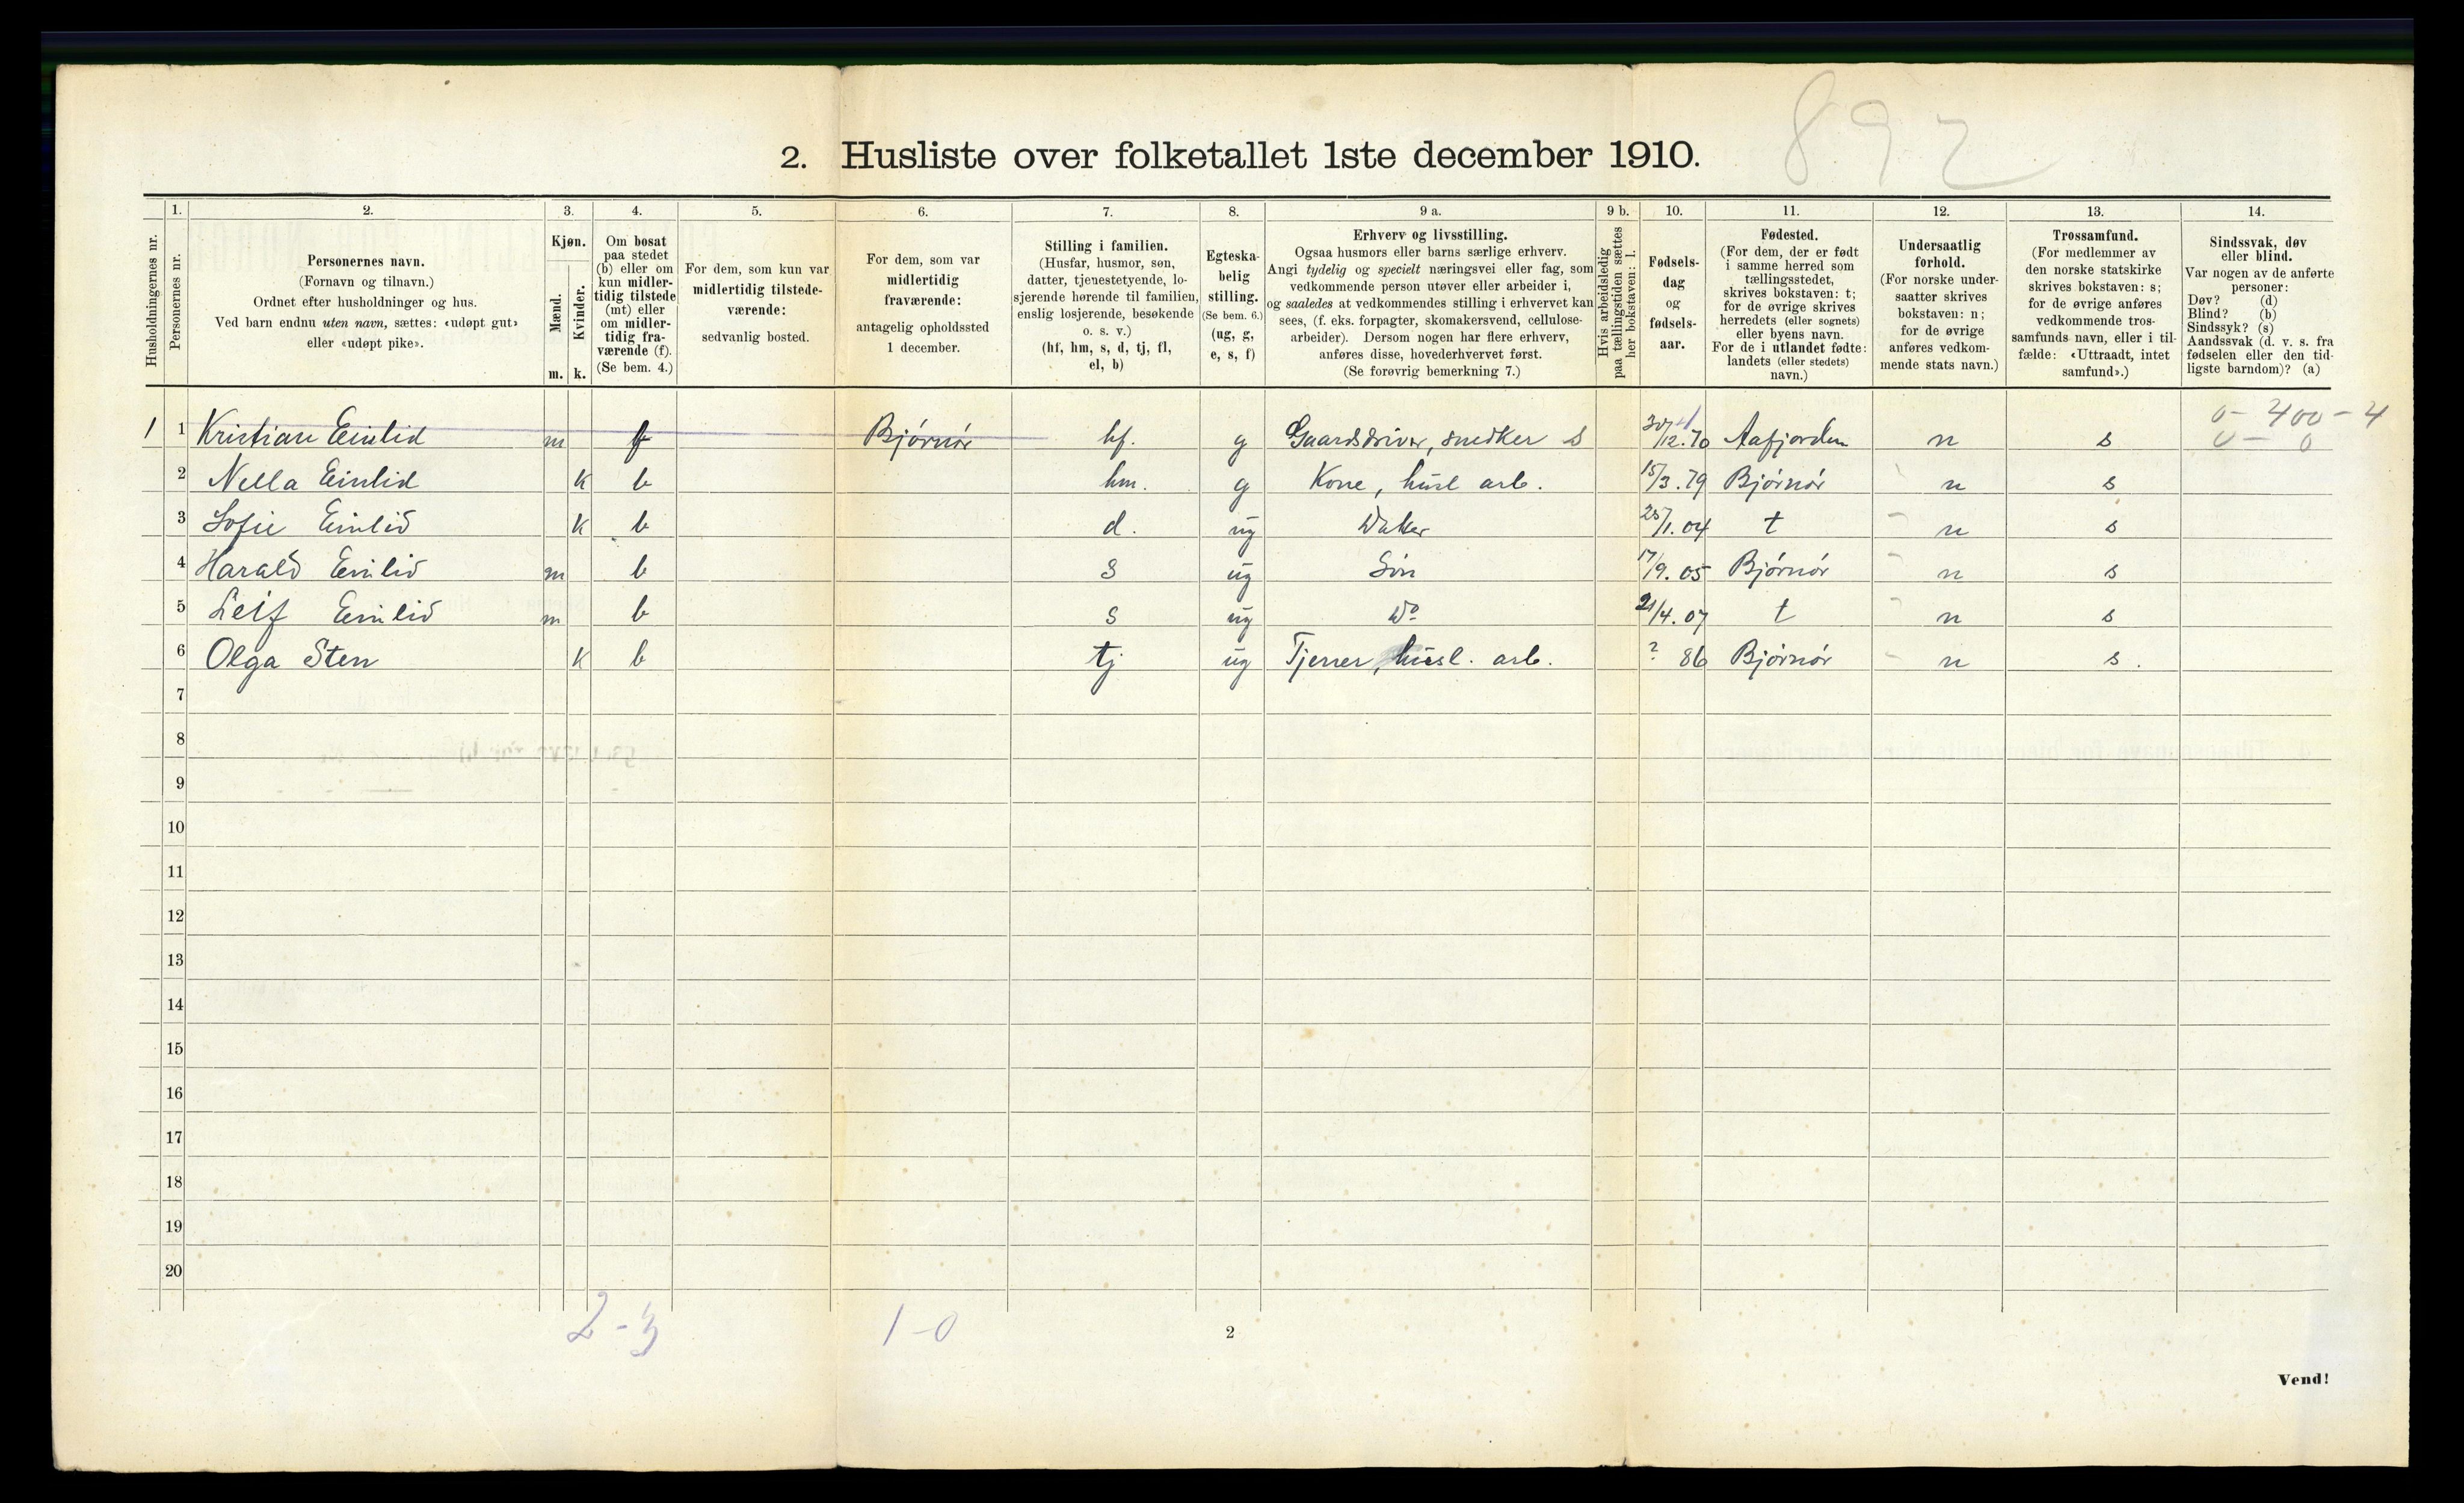 892
2. Husliste over folketallet 1ste december 1910.
1. 2. 3. 4. 5. 6. 7. 8. 9 a. 9 b. 10. 11. 12. 13. 14.
Husholdningernes nr.
Personernes nr.
Personernes navn.
(Fornavn og tilnavn.)
Ordnet efter husholdninger og hus.
Ved barn endnu uten navn, sættes: «udøpt gut»
eller «udøpt pike».
Kjøn.
Mænd.
Kvinder.
m. k.
Om bosat
paa stedet
(b) eller om
kun midler-
tidig tilstede
(mt) eller
om midler-
tidig fra-
værende (f).
(Se bem. 4.)
For dem, som kun var
midlertidig tilstede-
værende:
sedvanlig bosted.
For dem, som var
midlertidig
fraværende:
antagelig opholdssted
1 december.
Stilling i familien.
(Husfar, husmor, søn,
datter, tjenestetyende, lo-
sjerende hørende til familien,
enslig losjerende, besøkende
o. s. v.)
(hf, hm, s, d, tj, fl,
el, b)
Egteska-
belig
stilling.
(Se bem. 6.)
(ug, g,
e, s, f)
Erhverv og livsstilling.
Ogsaa husmors eller barns særlige erhverv.
Angi tydelig og specielt næringsvei eller fag, som
vedkommende person utøver eller arbeider i,
og saaledes at vedkommendes stilling i erhvervet kan
sees, (f. eks. forpagter, skomakersvend, cellulose-
arbeider). Dersom nogen har flere erhverv,
anføres disse, hovederhvervet først.
(Se forøvrig bemerkning 7.)
Hvis arbeidsledig
paa tællingstiden sættes
her bokstaven: l.
Fødsels-
dag
og
fødsels-
aar.
Fødested.
(For dem, der er født
i samme herred som
tællingsstedet,
skrives bokstaven: t;
for de øvrige skrives
herredets (eller sognets)
eller byens navn.
For de i utlandet fødte:
landets (eller stedets)
navn.)
Undersaatlig
forhold.
(For norske under-
saatter skrives
bokstaven: n;
for de øvrige
anføres vedkom-
mende stats navn.)
Trossamfund.
(For medlemmer av
den norske statskirke
skrives bokstaven: s;
for de øvrige anføres
vedkommende tros-
samfunds navn, eller i til-
fælde: «Uttraadt, intet
samfund».)
Sindssvak, døv
eller blind.
Var nogen av de anførte
personer:
Døv? (d)
Blind? (b)
Sindssyk? (s)
Aandssvak (d. v. s. fra
fødselen eller den tid-
ligste barndom)? (a)
0 - 400 - 4
1 1 Kristian Einlid m f Bjørnør hf. g Gaardsdriver, snedker s 30/12.70 Aafjorden n s 0 - 0
2 Nella Einlid k b hm. g Kone, husl arb. 15/3.79 Bjørnør n s
3 Sofie Einlid k b d. ug Datter 25/1.04 t n s
4 Harald Einlid m b s ug Søn 17/9.05 Bjørnør n s
5 Leif Einlid m b s ug Do 21/4.07 t n s
6 Olga Sten k b tj ug Tjener, husl. arb. ? 86 Bjørnør n s.
7
8
9
10
11
12
13
14
15
16
17
18
19
20
2-3 1-0
2
Vend!